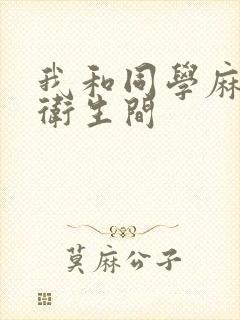 我和同學麻
衛生間
莫麻公子